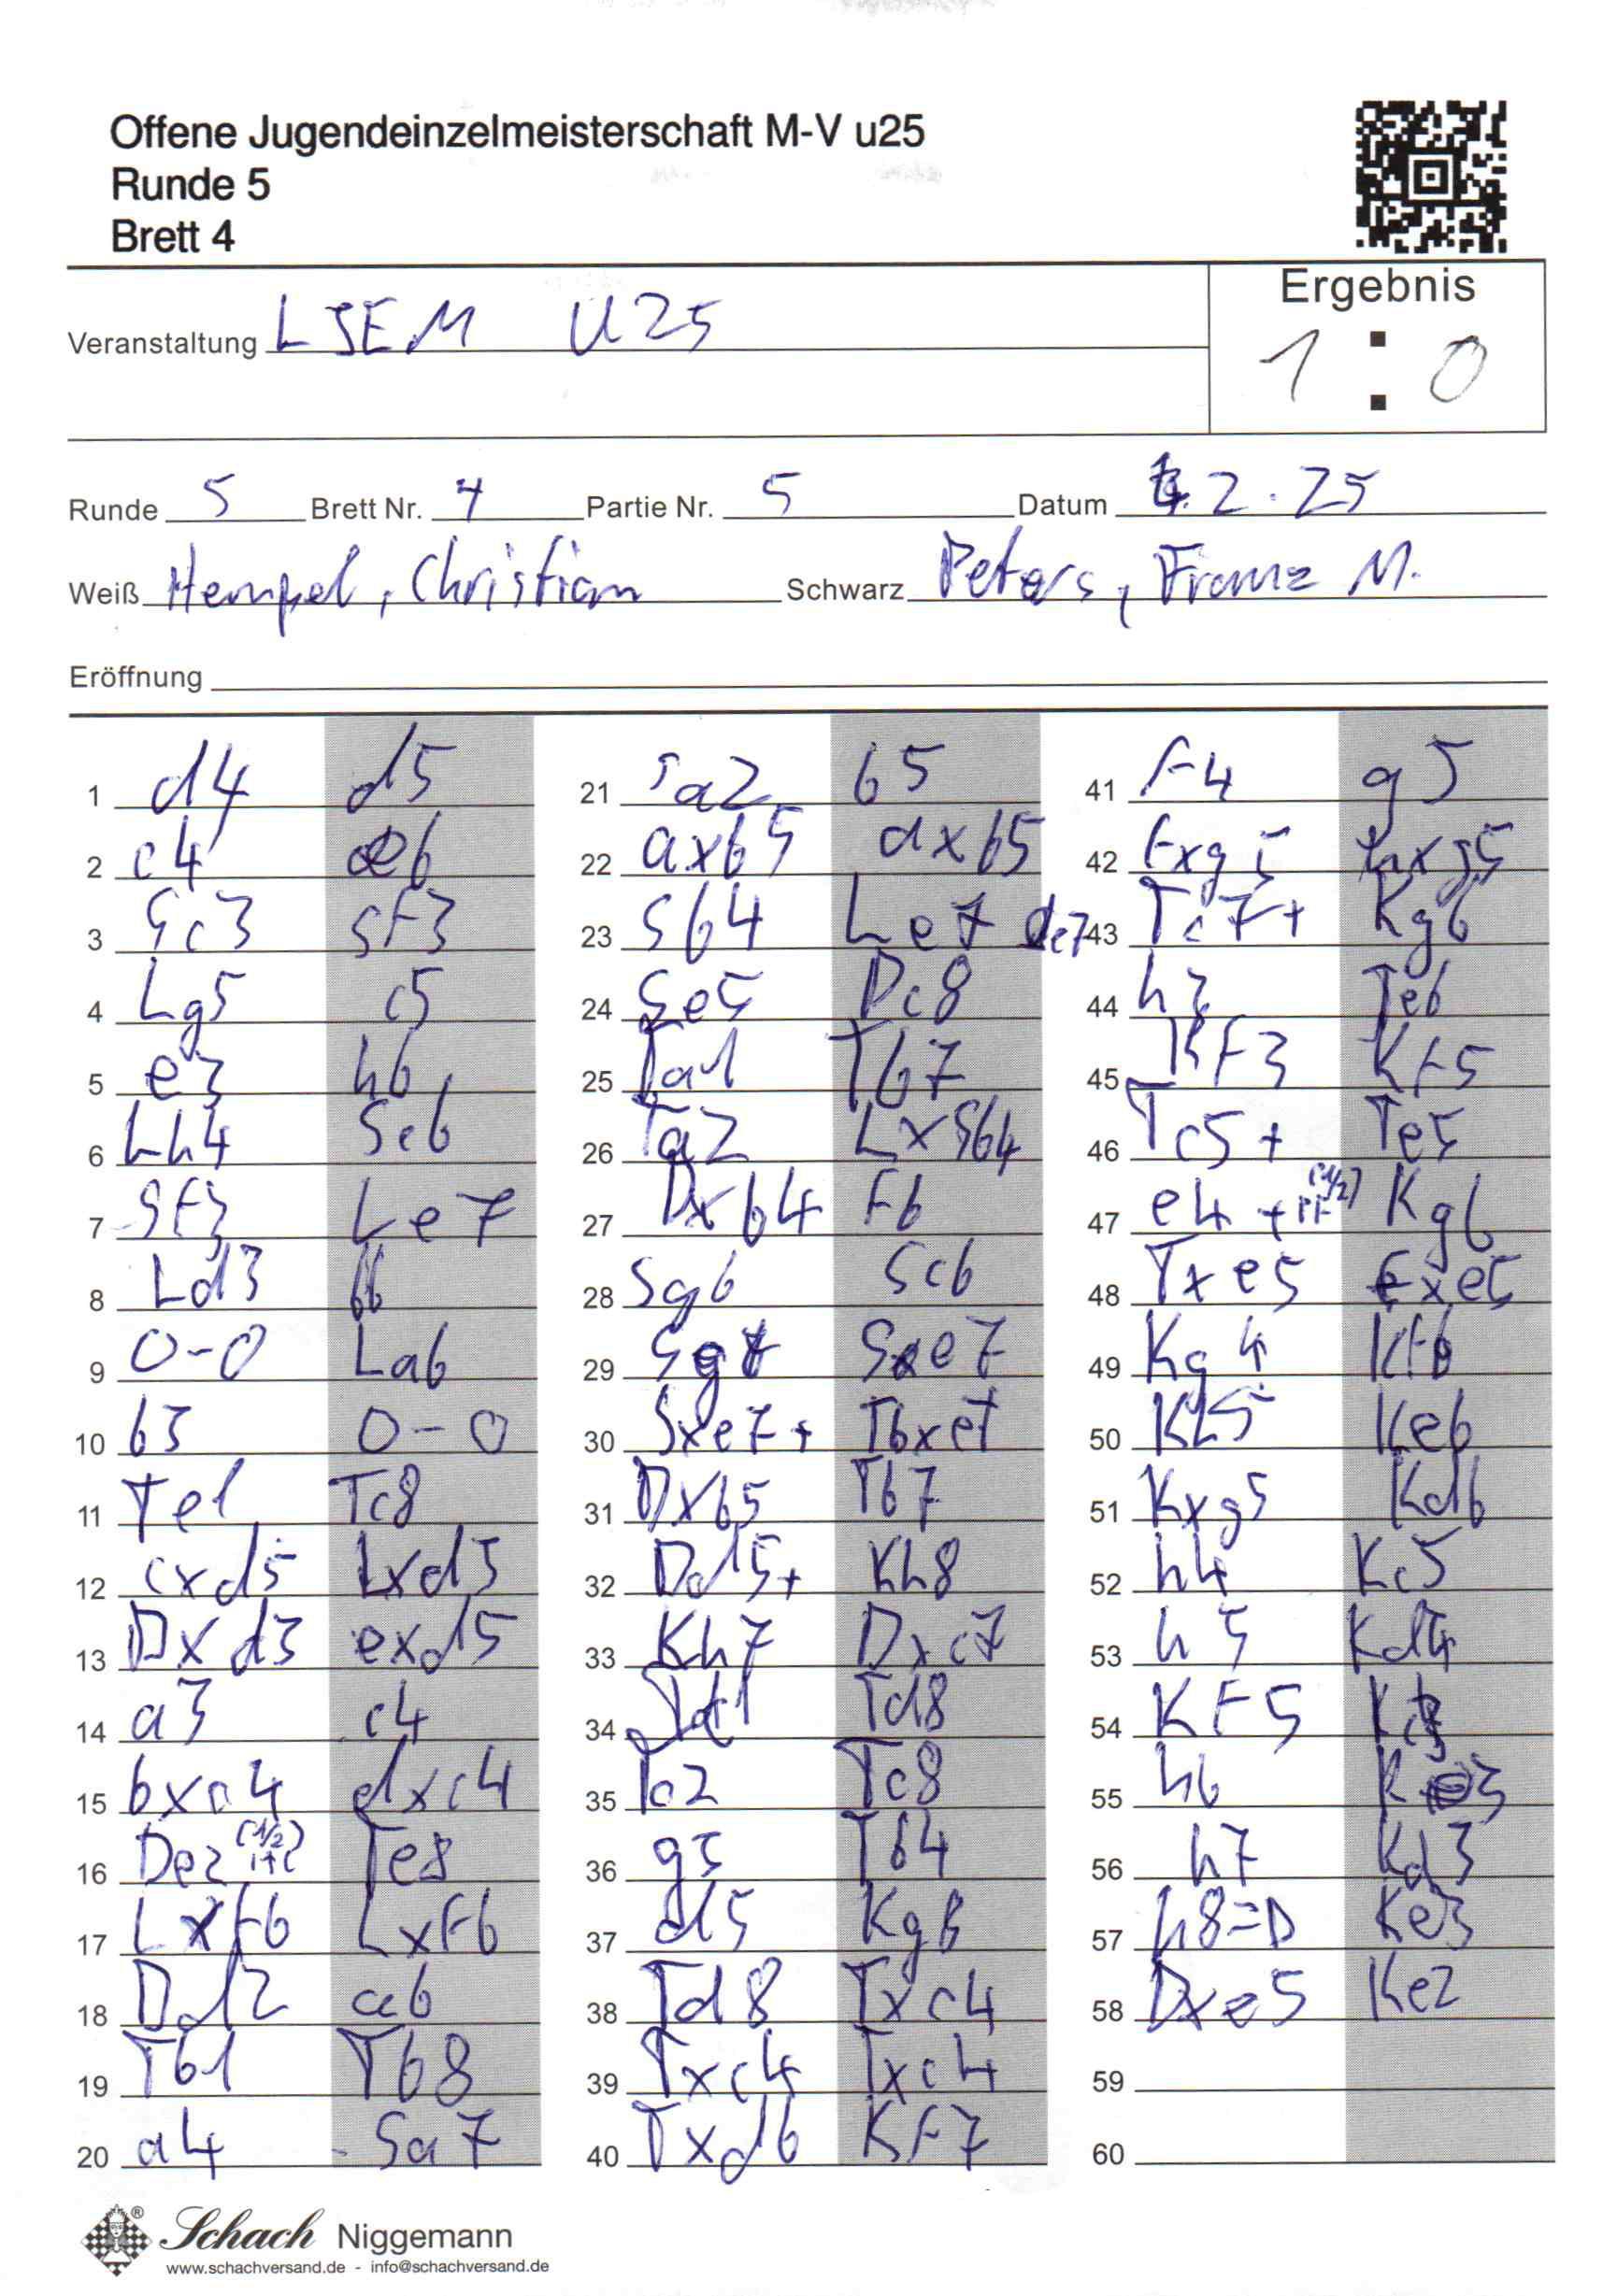 Offene Jugendeinzelmeisterschaft M-V u25
Runde 5
Brett 4
Ergebnis
1 : 0
Veranstaltung LJEM U25
Runde 5 Brett Nr. 4 Partie Nr. 5 Datum 2.25
Weiß Hempel, Christian Schwarz Peters, Franz M.
Eröffnung
1 d4 d5
2 c4 e6
3 Sc3 Sf3
4 Lg5 c5
5 e3 h6
6 Lh4 Sc6
7 Sf3 Le7
8 Ld3 b6
9 0-0 La6
10 b3 0-0
11 Te1 Tc8
12 cxd5 Lxd3
13 Dxd3 exd5
14 a3 c4
15 bxc4 dxc4
16 De2 (1/2) Te8
17 Lxf6 Lxf6
18 Dd2 a6
19 Tb1 Tb8
20 a4 Sa7
21 Sa2 b5
22 axb5 axb5
23 Sb4 Le7 de7
24 Se5 Dc8
25 Ta1 Tb7
26 Ta2 LxSb4
27 Dxb4 f6
28 Sg6 Sc6
29 Se7 Sxe7
30 Sxe7+ Tbxe7
31 Dxb5 Tb7
32 Dd5+ Kh8
33 Kh7 Dxc7
34 Td8
35 Tc2 Tc8
36 g3 Tb4
37 d5 Kg8
38 Td8 Txc4
39 Txc4 Txc4
40 Txd6 Kf7
41 f4 g5
42 fxg5 hxg5
43 Tc7+ Kg6
44 h3 Te6
45 Kf3 Kf5
46 Tc5+ Te5
47 e4+ (1/2) Kg6
48 Txe5 fxe5
49 Kg4 Kf6
50 Kh5 Ke6
51 Kxg5 Kd6
52 h4 Kc5
53 h5 Kd4
54 Kf5
55 h6
56 h7 Kd3
57 h8=D Ke3
58 Dxe5 Ke2
59
60
Schach Niggemann
www.schachversand.de - info@schachversand.de